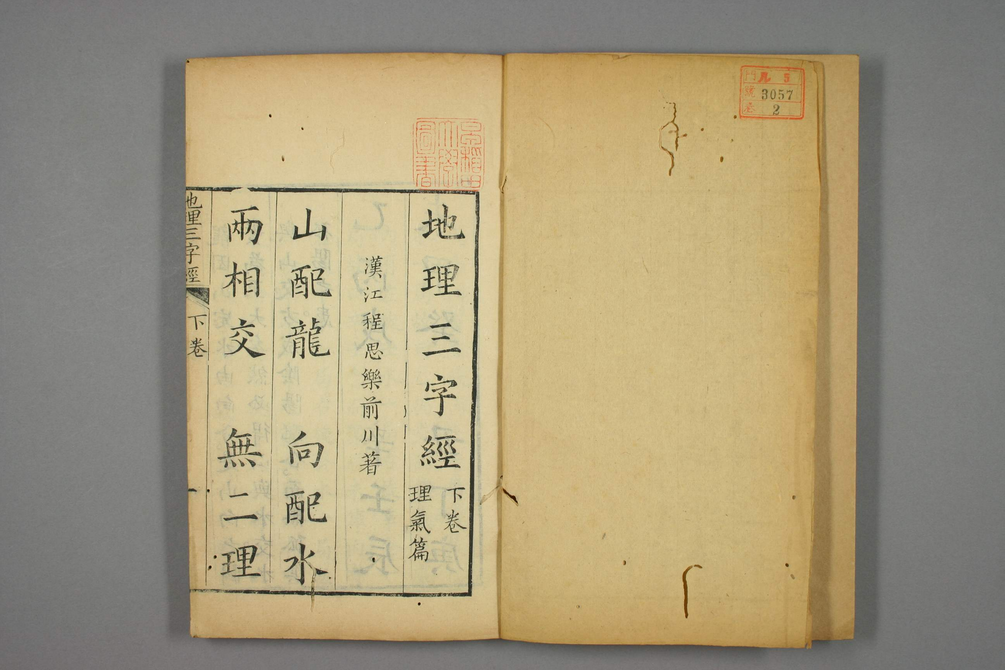 3057
2
地理三字經
下卷
理氣篇
漢江程思樂前川著
山配龍 向配水
兩相交 無二理
地理三字經
下卷